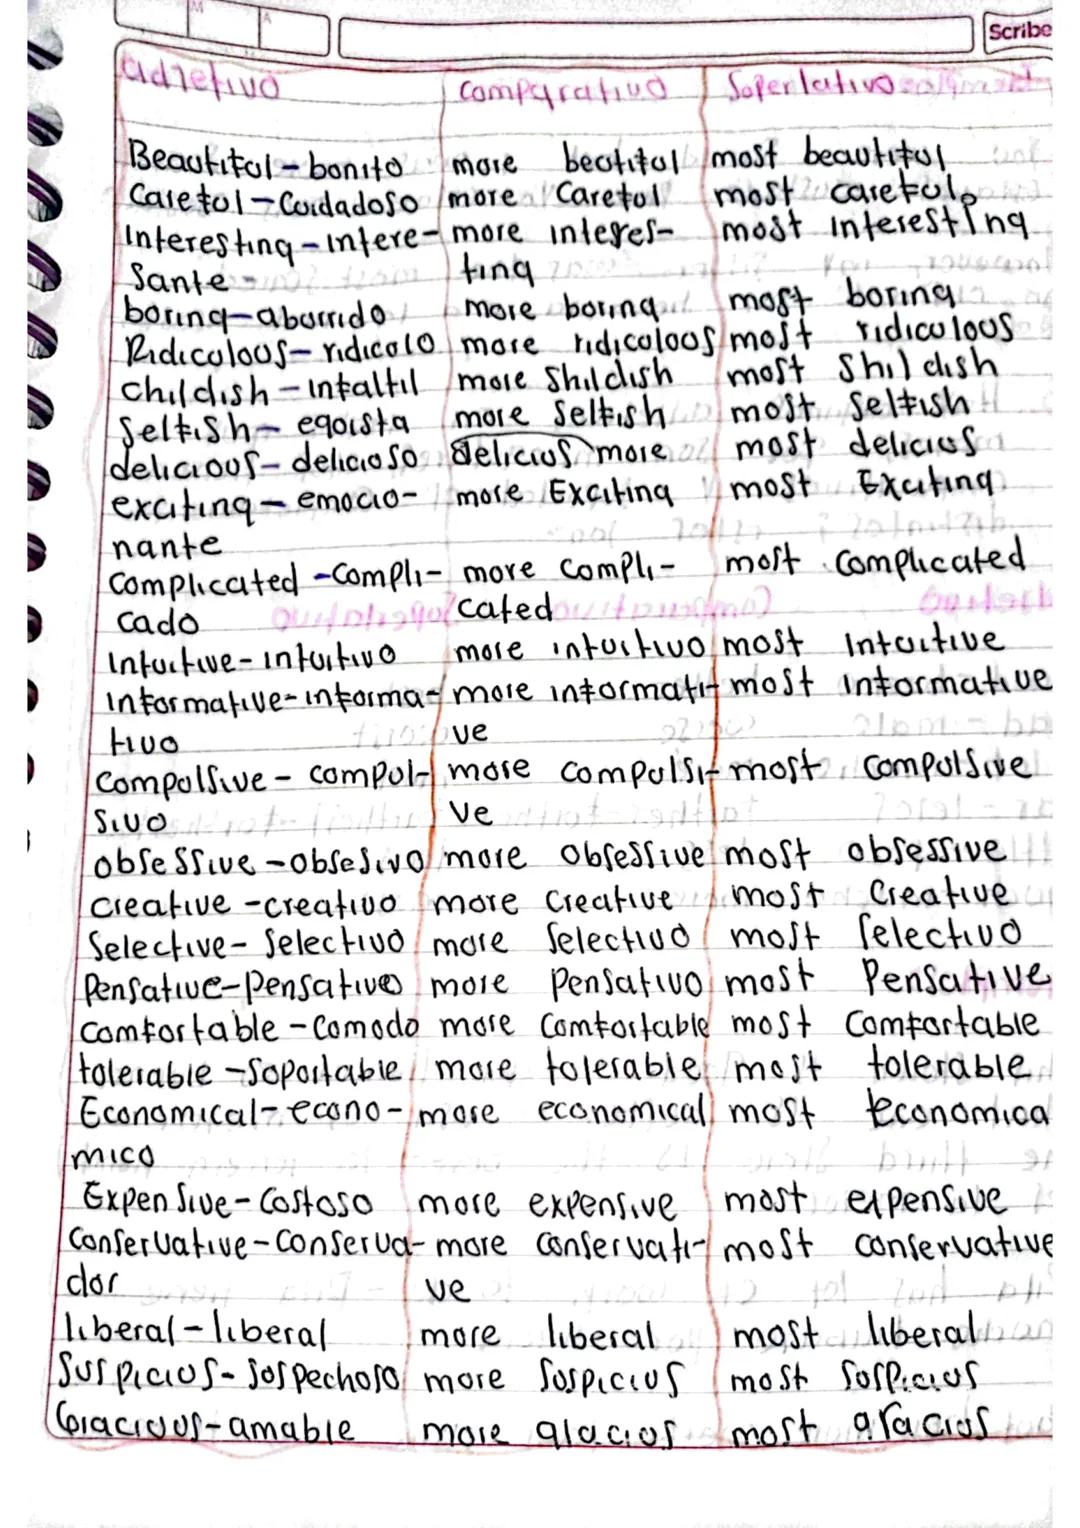 Scribe
adjetivo comparativo Soperlativo
Beautiful - bonito more beatiful most beautiful
Careful - Cuidadoso more Careful most careful
Interesting - intere- more interes- most interesting
Sante - ting
boring - aburrido more boring most boring
Ridiculous - ridicolo more ridicolous most ridiculous
Childish - infaltil more Shildish most Shildish
Selfish - egoista more Selfish most Selfish
delicious - delicioso delicius more most delicius
exciting - emocio- more Exciting most Exciting
nante
Complicated - Compli- more compli- most Complicated
cado cated
Intuitive - intuitivo more intuitivo most Intuitive
Informative - informa- more informati- most informative
tivo ve
Compolsive - compol- more compulsi- most compolsive
sivo ve
obsessive - obsesivo more obsessive most obsessive
creative - creativo more Creative most Creative
Selective - Selectivo more Selectivo most Selectivo
Pensative - pensativo more Pensativo most Pensative
comfortable - Comodo more Comfortable most Comfortable
tolerable - Soportable more tolerable most tolerable
Economical - econo- more economical most Economica
mico
Expensive - Costoso more expensive most expensive
Conservative - Conserva- more conservati- most conservative
dor ve
liberal - liberal more liberal most liberal
Suspicius - Sospechoso more Suspicius most Suspicius
Gracious - amable more glacius most gracius